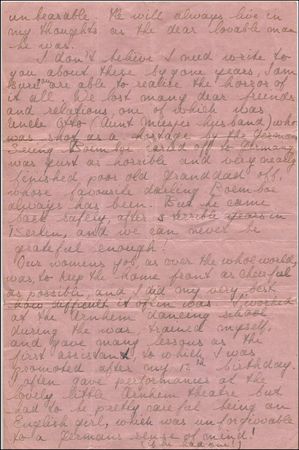 unbearable. He will always live in
my thoughts as the dear lovable man
he was.
I don't believe I need write to
you about these bygone years, I am
sure you are able to realise the horror of
it all. We lost many dear friends
and relations, one of which was
Uncle Otto (Aunt Miesjes husband) who
was shot as a hostage by the Germans
Seeing Boemboe carted off to Germany
was just as horrible and very nearly
finished poor old Granddad off,
whose favourite darling Boemboe
always has been. But he came
back safely, after 5 terrible years in
Berlin, and we can never be
grateful enough!
Our womens job, as over the whole world,
was, to keep the home front as cheerful
as possible, and I did my very best
how difficult it often was. I worked
at the Arnhem dancing school
during the war, trained myself,
and gave many lessons as the
first assistant, to which I was
promoted after my 15th birthday.
I often gave performances at the
lovely little Arnhem theatre but
had to be pretty careful being an
English girl, which was unforgivable
to a Germans sense of mind!